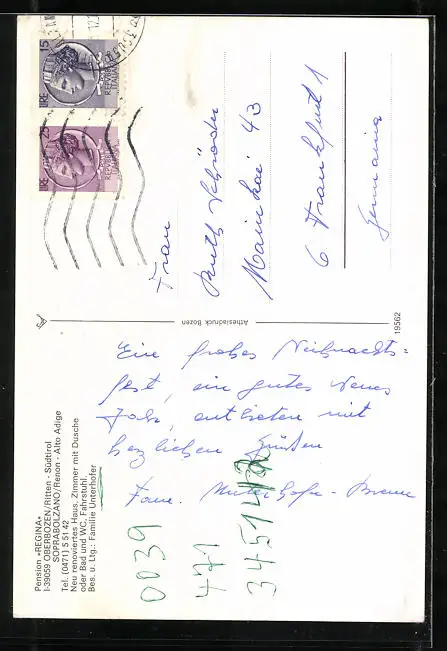 Pension «REGINA»
I-39059 OBERBOZEN/Ritten - Südtirol
SOPRABOLZANO/Renon - Alto Adige
Tel. (0471) 5 51 42
Neu renoviertes Haus, Zimmer mit Dusche
oder Bad und WC, Fahrstuhl.
Bes. u. Ltg.: Familie Unterhofer
Eine frohes Weihnachts=
fest, ein gutes Neues
Jahr, entbieten mit
herzlichen Grüßen
Fam. Unterhofer -
0039
471
345142
Athesiadruck Bozen
19562
LIRE 15
REPVBBLICA ITALIANA
LIRE 25
REPVBBLICA ITALIANA
Frau
Ruth Schröder
Mainkai 43
6 Frankfurt 1
Germania